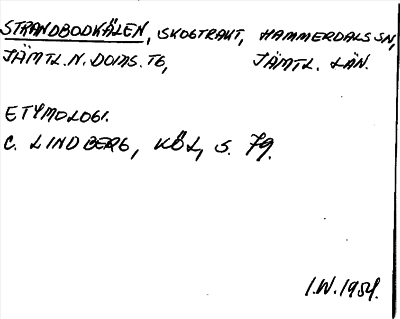 STRANDBODKÄLEN, SKOGTRAKT, HAMMERDALS SN,
JÄMTL. N. DOMS. TG, JÄMTL. LÄN.
ETYMOLOGI.
C. LINDBERG, KÖL, S. 79.
I.W. 1954.